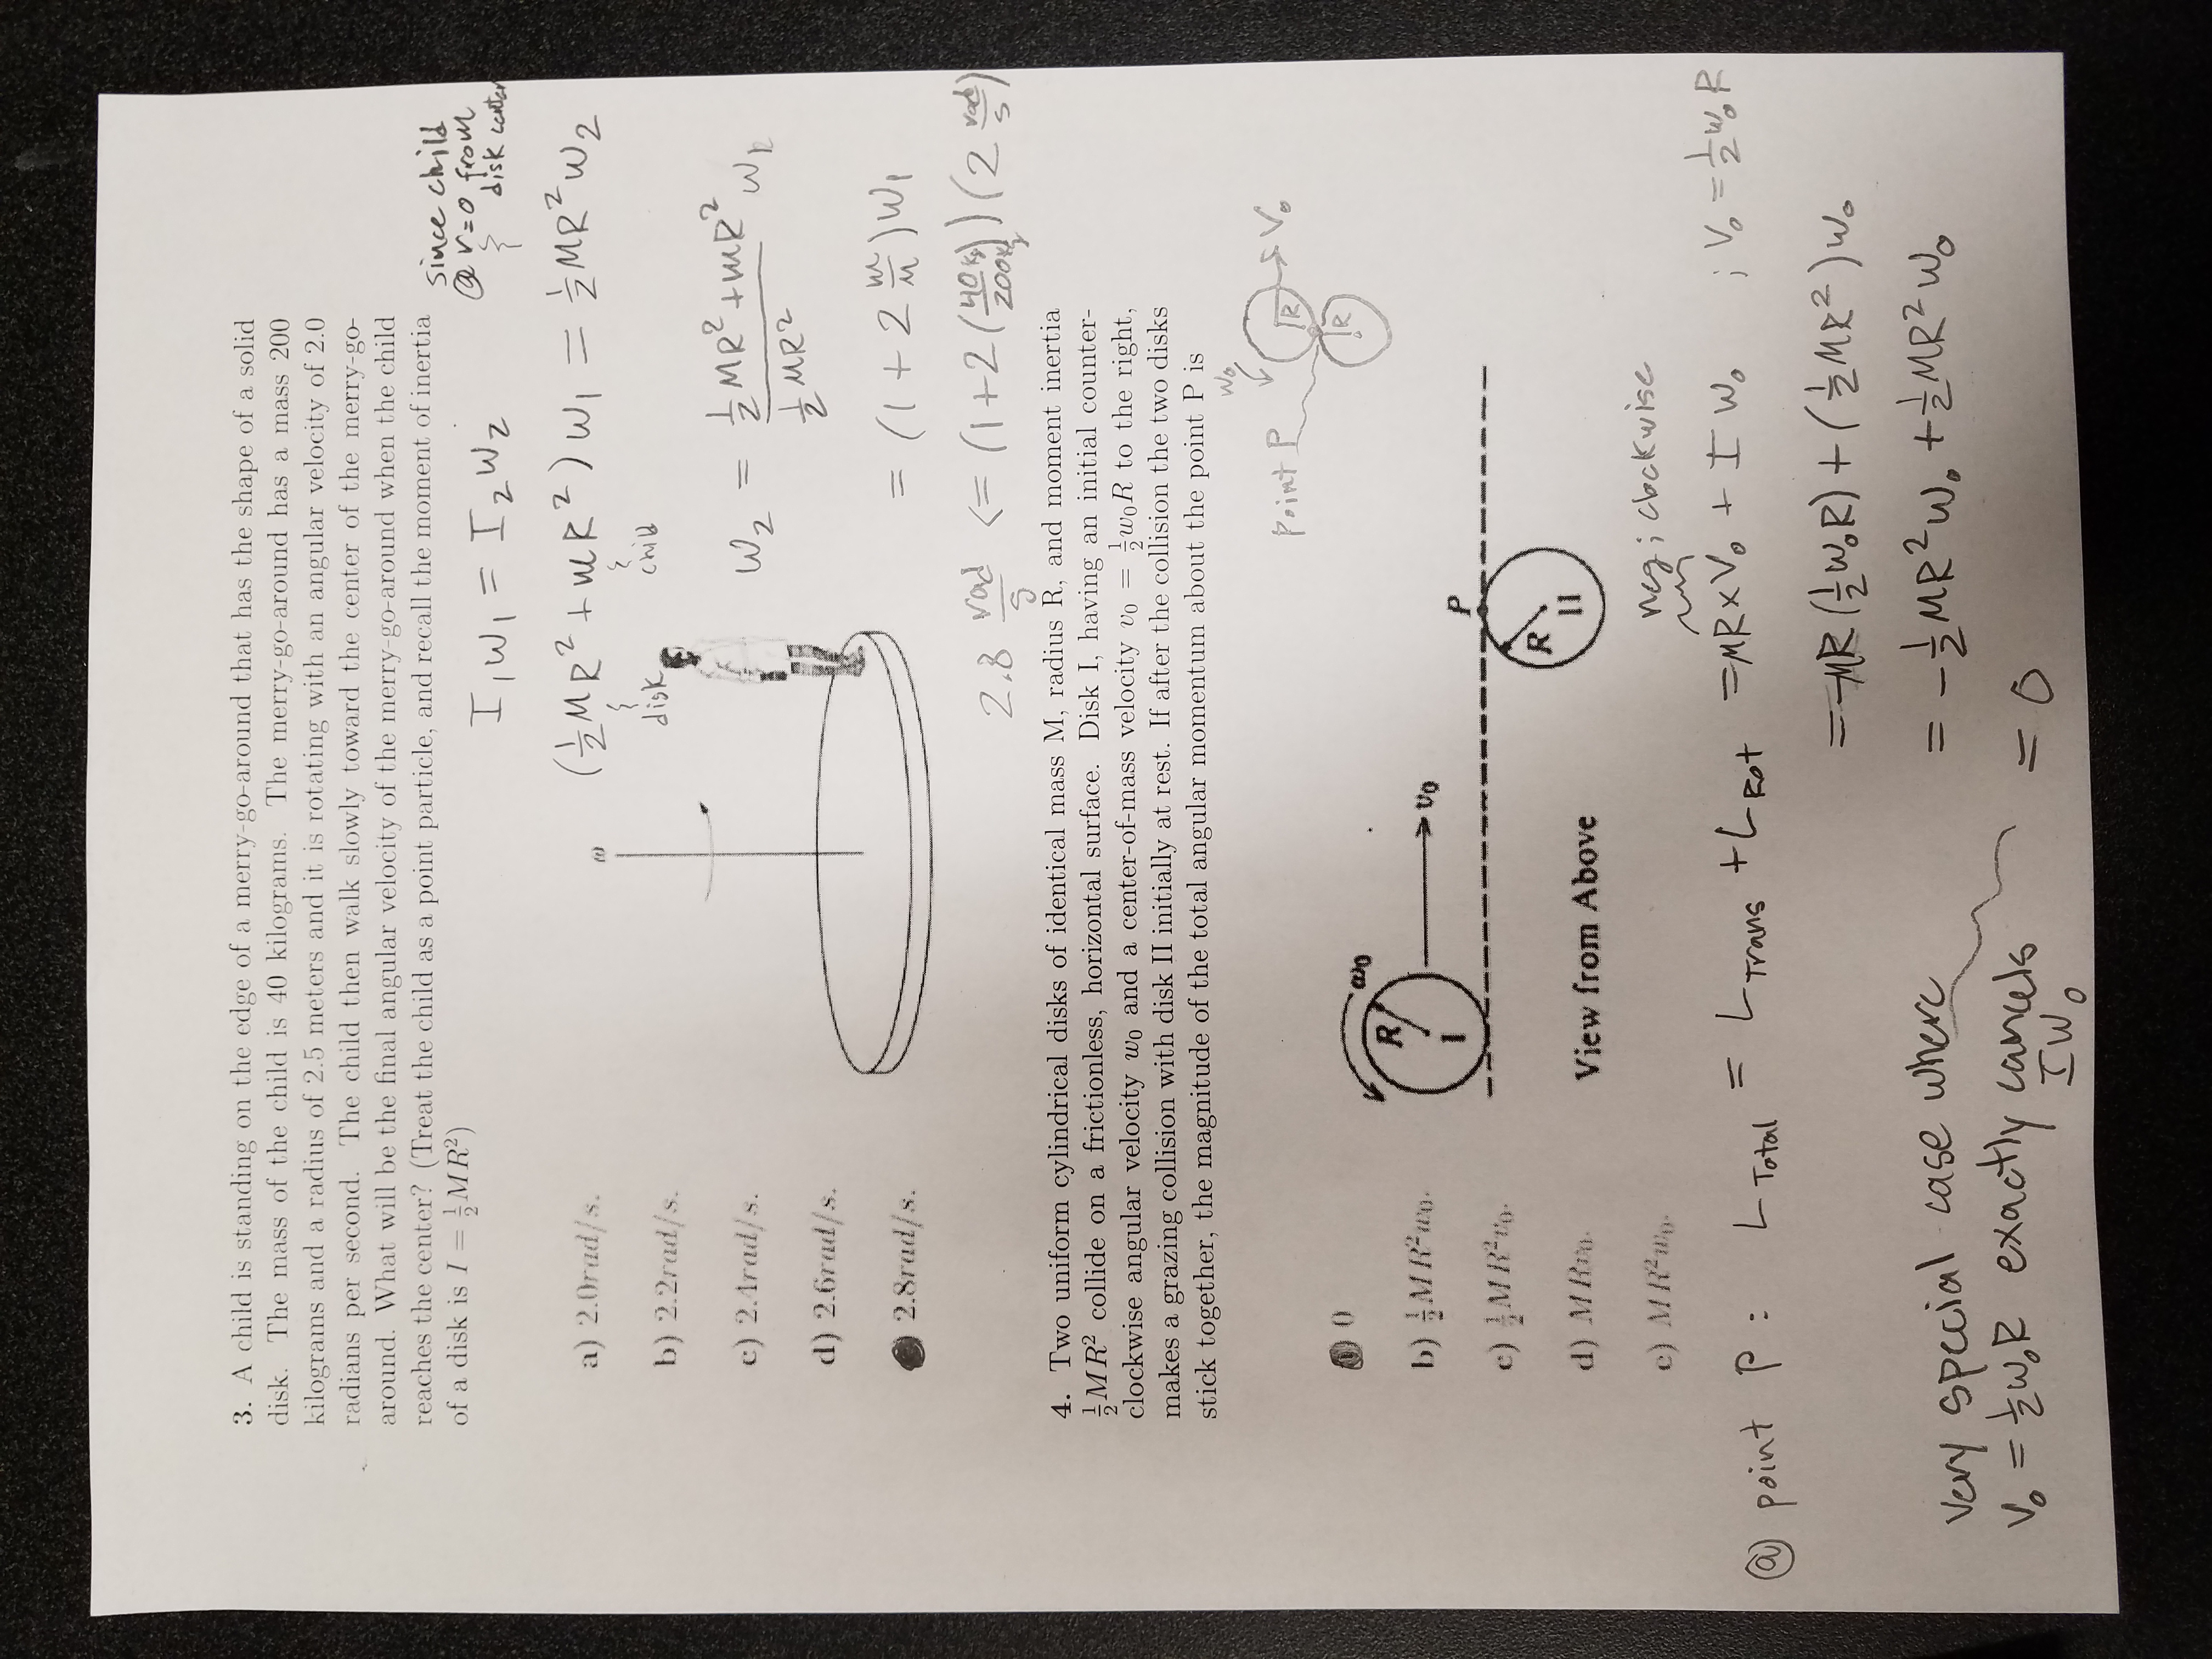 3. A child is standing on the edge of a merry-go-around that has the shape of a solid
disk. The mass of the child is 40 kilograms. The merry-go-around has a mass 200
kilograms and a radius of 2.5 meters and it is rotating with an angular velocity of 2.0
radians per second. The child then walk slowly toward the center of the merry-go-
around. What will be the final angular velocity of the merry-go-around when the child
reaches the center? (Treat the child as a point particle, and recall the moment of inertia
of a disk is I = ½MR²)
since child
@ r=0 from
disk center
I₁w₁ = I₂w₂
(½MR² + mR²) w₁ = ½MR² w₂
disk
child
a) 2.0rad/s.
b) 2.2rad/s.
c) 2.4rad/s.
d) 2.6rad/s.
2.8rad/s.
ω
w₂ = (½MR² + mR²)/(½MR²) w₁
= (1 + 2 m/M) w₁
2.8 rad/s <= (1+2(40kg/200kg))(2 rad/s)
4. Two uniform cylindrical disks of identical mass M, radius R, and moment inertia
½MR² collide on a frictionless, horizontal surface. Disk I, having an initial counter-
clockwise angular velocity w₀ and a center-of-mass velocity v₀ = ½w₀R to the right,
makes a grazing collision with disk II initially at rest. If after the collision the two disks
stick together, the magnitude of the total angular momentum about the point P is
w₀
Point P
R
V₀
R
0
b) ½MR²w₀.
c) ½MR²v₀.
d) MRv₀.
e) MR²w₀.
ω₀
R
I
υ₀
P
R
II
View from Above
neg; clockwise
@ point P: L Total = L Trans + L Rot = MR×V₀ + I w₀ ; V₀ = ½w₀R
= -MR(½w₀R) + (½MR²)w₀
= -½MR²w₀ + ½MR²w₀
= 0
Very special case where
V₀ = ½w₀R exactly cancels
Iw₀